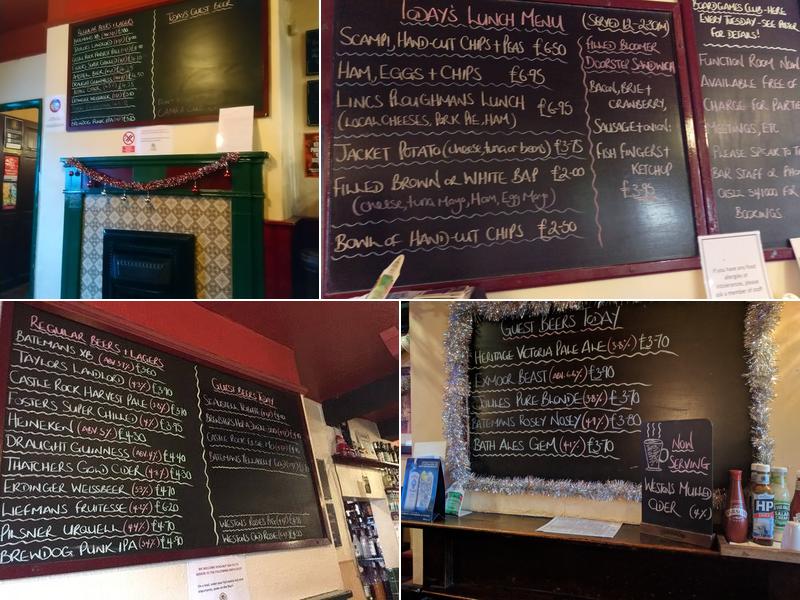 REGULAR BEERS + LAGERS
TODAY'S GUEST BEER
TODAY'S LUNCH MENU
(SERVED 12-2:30PM)
SCAMPI, HAND-CUT CHIPS + PEAS £6.50
HAM, EGGS + CHIPS £6.95
LINCS PLOUGHMANS LUNCH £6.95
(LOCAL CHEESES, PORK PIE, HAM)
JACKET POTATO (cheese, tuna or beans) £3.75
FILLED BROWN OR WHITE BAP £2.00
(Cheese, tuna Mayo, Ham, Egg Mayo)
BOWL OF HAND-CUT CHIPS £2.50
FILLED BLOOMER
DOORSTEP SANDWICH
BACON, BRIE +
CRANBERRY,
SAUSAGE + ONION:
FISH FINGERS +
KETCHUP
£3.95
BOARDGAMES CLUB - HERE
EVERY TUESDAY - SEE
FOR DETAILS!
FUNCTION ROOM NOW
AVAILABLE FREE OF
CHARGE FOR PARTIE
MEETINGS, ETC
PLEASE SPEAK TO T
BAR STAFF OR PHO
BOOKINGS
If you have any food
allergies or
intolerances, please
ask a member of staff
REGULAR BEERS + LAGERS
BATEMANS XB (ABV 3.7%) £3.60
TAYLORS LANDLORD (4.3%) £3.90
CASTLE ROCK HARVEST PALE (3.8%) £3.70
FOSTERS SUPER CHILLED (4%) £3.95
HEINEKEN (ABV 5%) £4.30
DRAUGHT GUINNESS (ABV 4.1%) £4.40
THATCHERS GOLD CIDER (4.8%) £4.30
ERDINGER WEISSBEER (5.3%) £4.70
LIEFMANS FRUITESSE (4.2%) £6.20
PILSNER URQUELL (4.4%) £4.70
BREWDOG PUNK IPA (5.4%) £4.90
GUEST BEERS TODAY
WESTONS ROSIES PIG
WESTONS OLD ROSIE
GUEST BEERS TODAY
HERITAGE VICTORIA PALE ALE (3.8%) £3.70
EXMOOR BEAST (ABV 6.6%) £3.90
JOULES PURE BLONDE (3.8%) £3.70
BATEMANS ROSEY NOSEY (4.9%) £3.80
BATH ALES GEM (4.1%) £3.70
NOW
SERVING
WESTONS MULLED
CIDER (4%)
HP